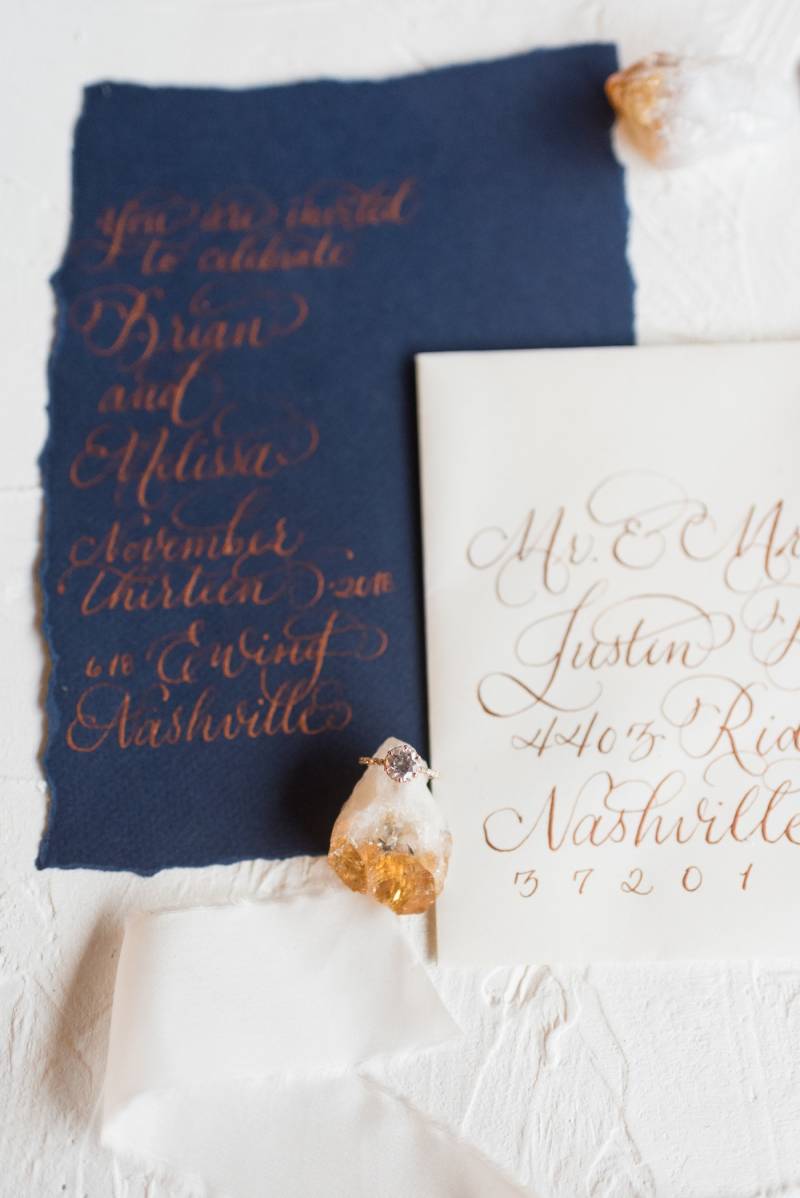 You are invited
to celebrate
Brian
and
Melissa
November
Thirteen · 2018
618 Ewing
Nashville
Mr. & Mr
Justin
4403 Rid
Nashville
37201